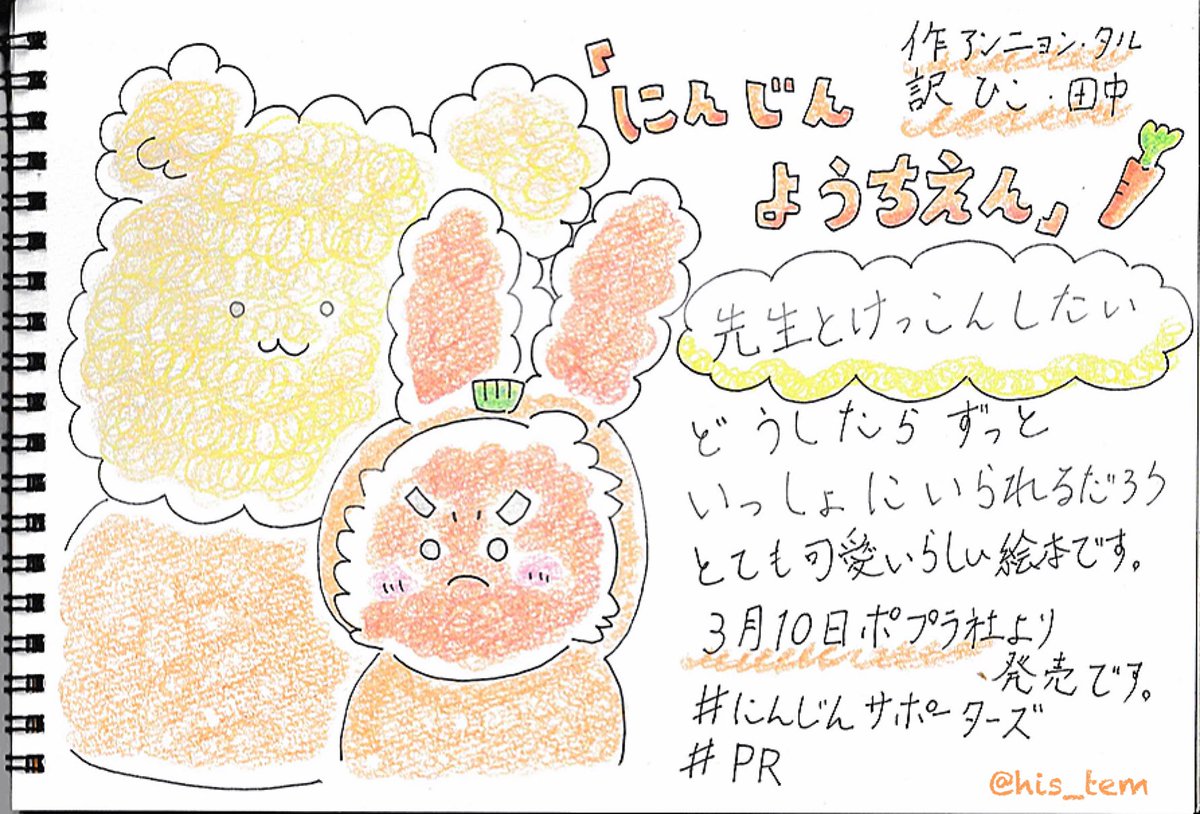 『にんじん
ようちえん』
作 アンニョン・タル
訳 ひこ・田中
先生とけっこんしたい
どうしたらずっと
いっしょにいられるだろう
とても可愛いらしい絵本です。
3月10日ポプラ社より
発売です。
#にんじんサポーターズ
#PR
@his_tem